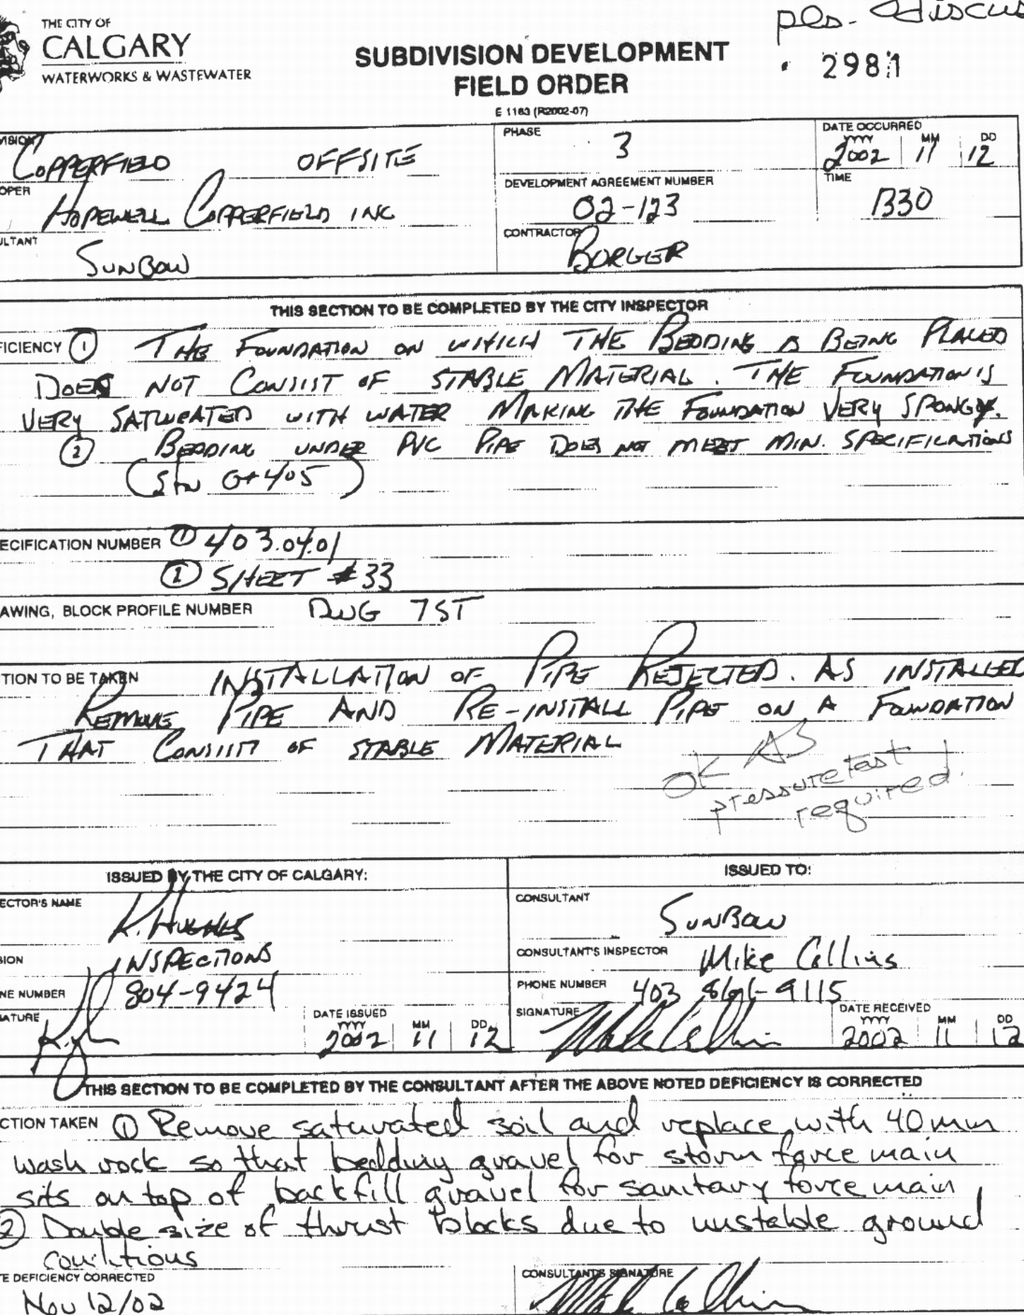 pls. discus
THE CITY OF
CALGARY
WATERWORKS & WASTEWATER
SUBDIVISION DEVELOPMENT
FIELD ORDER
2981
E 1163 (R2002-07)
VISION
COPPERFIELD OFFSITE
PHASE
3
DATE OCCURRED
YYYY MM DD
2002 11 12
OPER
HOPEWELL COPPERFIELD INC
DEVELOPMENT AGREEMENT NUMBER
02-123
TIME
1330
ULTANT
SUNBOW
CONTRACTOR
BORGER
THIS SECTION TO BE COMPLETED BY THE CITY INSPECTOR
FICIENCY ① THE FOUNDATION ON WHICH THE BEDDING IS BEING PLACED
DOES NOT CONSIST OF STABLE MATERIAL. THE FOUNDATION IS
VERY SATURATED WITH WATER MAKING THE FOUNDATION VERY SPONGY.
② BEDDING UNDER PVC PIPE DOES NOT MEET MIN. SPECIFICATIONS
(STN 0+405)
ECIFICATION NUMBER ① 403.04.01
② SHEET #33
AWING, BLOCK PROFILE NUMBER DWG 7ST
TION TO BE TAKEN INSTALLATION OF PIPE REJECTED. AS INSTALLED
REMOVE PIPE AND RE-INSTALL PIPE ON A FOUNDATION
THAT CONSIST OF STABLE MATERIAL
OK AS
pressure test
required.
ISSUED BY THE CITY OF CALGARY:
ISSUED TO:
ECTOR'S NAME
K. HUGHES
CONSULTANT
SUNBOW
SION
INSPECTIONS
CONSULTANT'S INSPECTOR
Mike Collins
NE NUMBER
804-9424
PHONE NUMBER
403 861-9115
ATURE
DATE ISSUED
YYYY MM DD
2002 11 12
SIGNATURE
Mike Collins
DATE RECEIVED
YYYY MM DD
2002 11 12
THIS SECTION TO BE COMPLETED BY THE CONSULTANT AFTER THE ABOVE NOTED DEFICIENCY IS CORRECTED
CTION TAKEN ① Remove saturated soil and replace with 40 mm
wash rock so that bedding gravel for storm force main
sits on top of backfill gravel for sanitary force main
② Double size of thrust blocks due to unstable ground
conditions
E DEFICIENCY CORRECTED
Nov 12/02
CONSULTANT'S SIGNATURE
Mike Collins